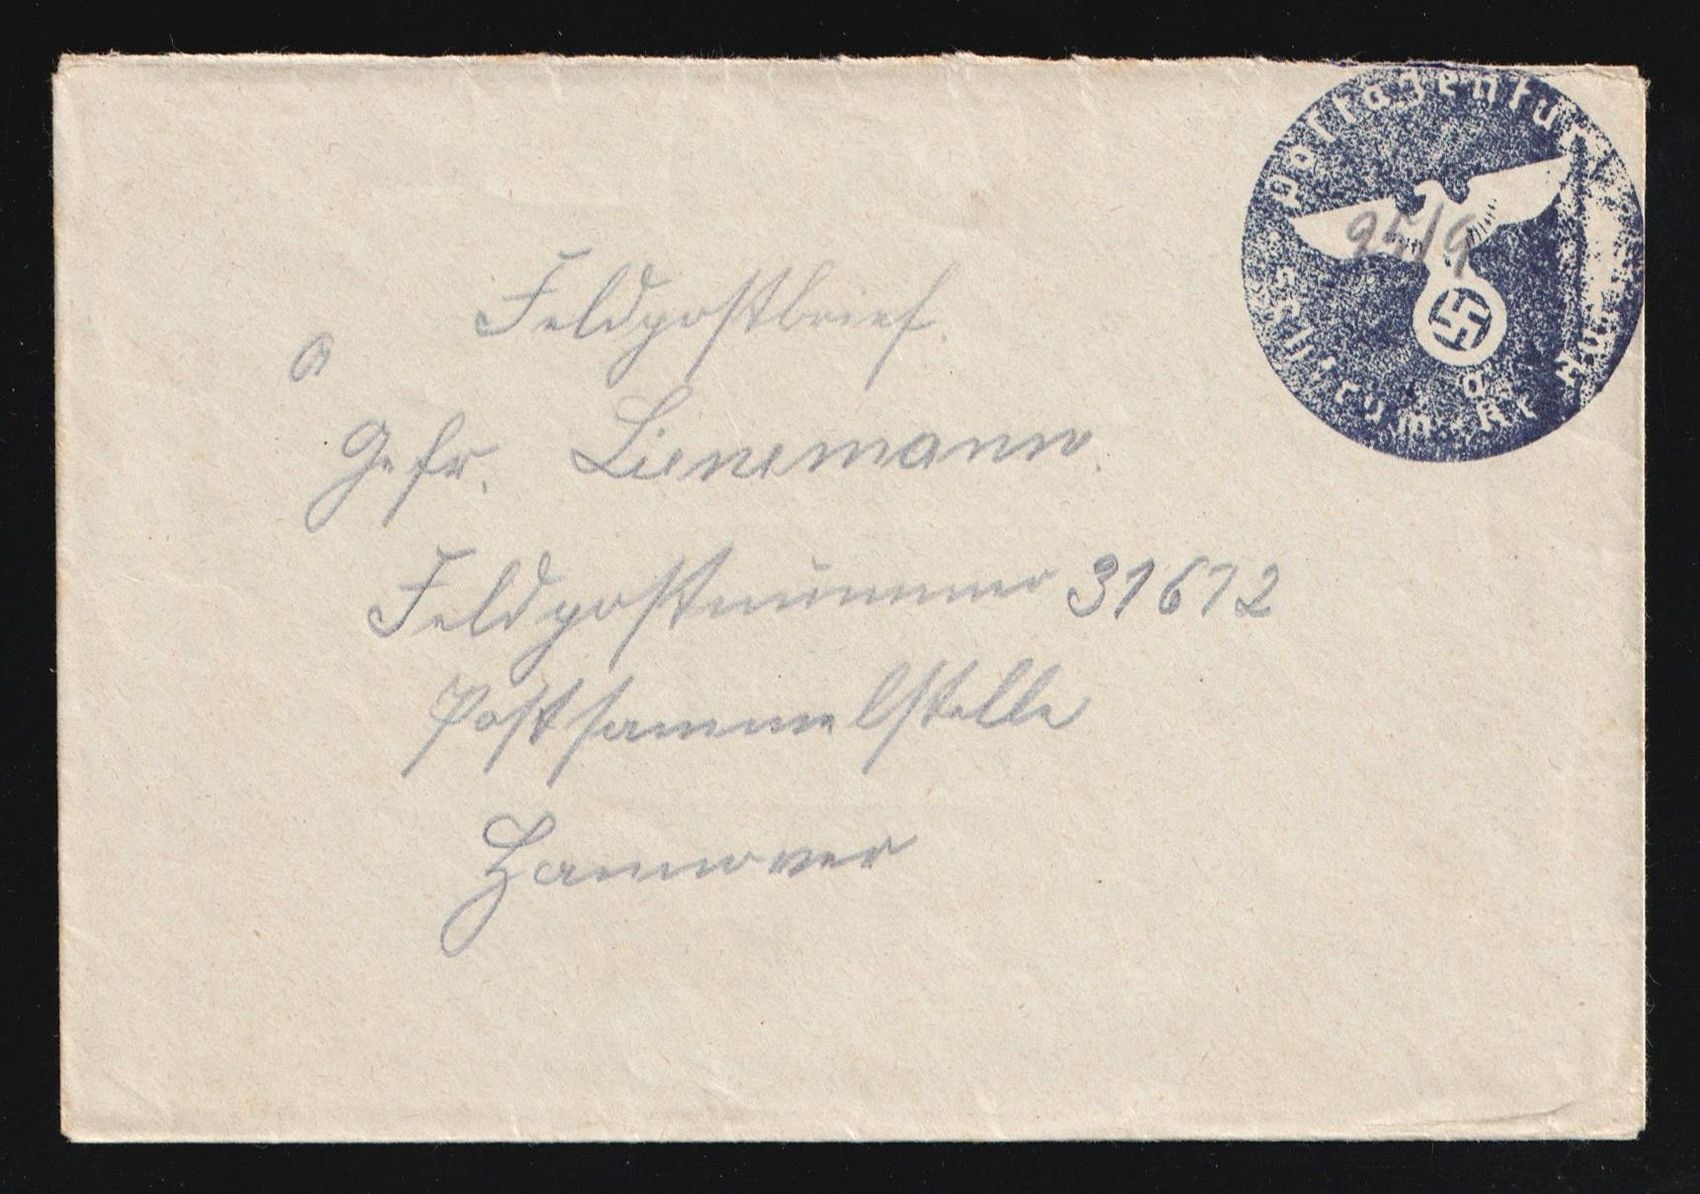 Postagentur
25/9
Feldpostbrief.
Gefr. Lienemann.
Feldpostnummer 31612
Postsammelstelle
Hannover